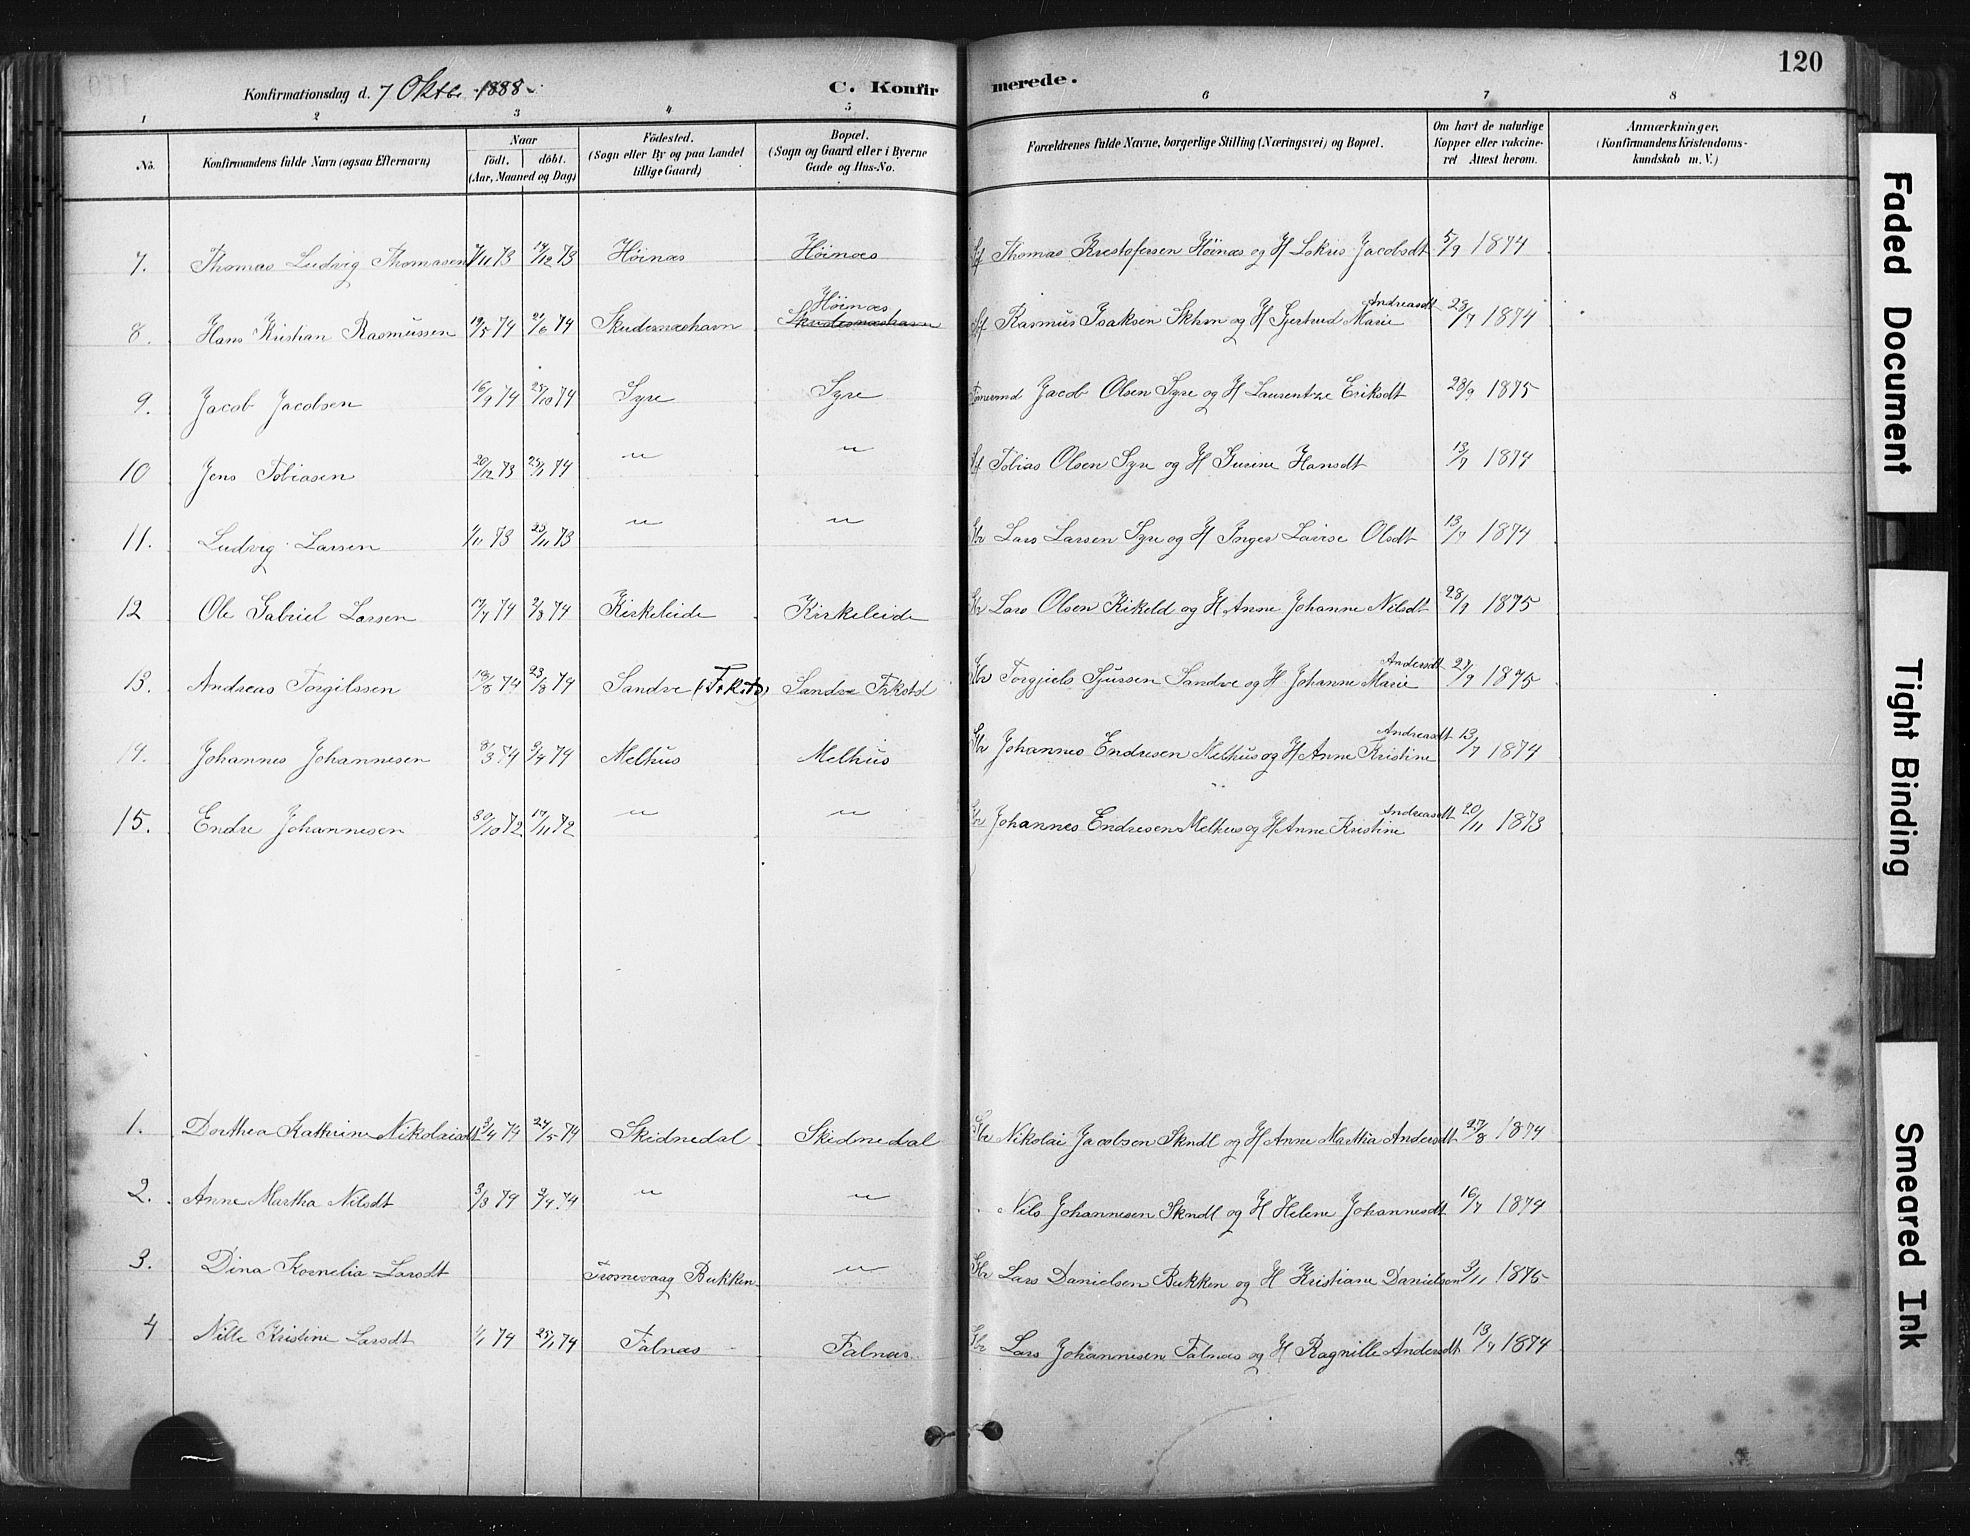 120
Konfirmationsdag d. 7 Oktbr 1888.
C. Konfirmerede.
1 2 3 4 5 6 7 8
No. Konfirmandens fulde Navn (ogsaa Efternavn) Naar födt. döbt. (Aar, Maaned og Dag) Födested. (Sogn eller By og paa Landet tillige Gaard) Bopæl. (Sogn og Gaard eller i Byerne Gade og Hus-No. Forældrenes fulde Navne, borgerlige Stilling (Næringsvei) og Bopæl. Om havt de naturlige Kopper eller vakcineret Attest herom. Anmærkninger. (Konfirmandens Kristendomskundskab m. V.)
7. Thomas Ludvig Thomasen /11 73 /12 73 Höinæs Höinæs Thomas Krestofersen Höinæs og H Lokris Jacobsdt 5/9 1874
8. Hans Kristian Rasmussen 19/5 74 21/6 74 Skudesnæshavn Höinæs Skudesnæshavn Rasmus Isaksen Skhvn og H Gjertrud Marie Andreasdt 1874
9. Jacob Jacobsen 16/9 74 25/10 74 Syre Syre Jacob Olsen Syre og H Laurentze Eriksdt 28/9 1875
10 Jens Tobiasen 20/12 73 25/1 74 " " Tobias Olsen Syre og H Gurine Hansdt 13/7 1874
11. Ludvig Larsen 1/11 73 25/11 73 " " Gbr Lars Larsen Syre og H Inger Lovise Olsdt 13/7 1874
12 Ole Gabriel Larsen 17/7 74 2/8 74 Kirkeleide Kirkeleide Gbr Lars Olsen Kikeld og H Anne Johanne Nilsdt 28/9 1875
13. Andreas Torgilssen /8 74 23/8 74 Sandve (Frkstd) Sandve Frkstd Gbr Torgjiels Sjursen Sandve og H Johanne Marie Andersdt 27/9 1875
14. Johannes Johannesen 8/3 74 3/4 74 Melhus Melhus Gbr Johannes Endresen Melhus og H Anne Kristine Andreasdt 13/7 1874
15. Endre Johannesen 30/10 72 17/11 72 " " Gbr Johannes Endresen Melhus og H Anne Kristine Andreasdt 20/11 1873
1. Dorthea Kathrine Nikolaisdt 3/4 74 24/5 74 Skidnedal Skidnedal Gbr Nikolai Jacobsen Skndl og H Anne Martha Andersdt 27/8 1874
2. Anne Martha Nilsdt 3/3 74 3/4 74 " " Nils Johannesen Skndl og H Helene Johannesdt 16/7 1874
3. Dina Kornelia Larsdt Fosnevaag Bukken " Gbr Lars Danielsen Bukken og H Kristiane Danielsen 3/11 1875
4 Nille Kristine Larsdt 1/1 74 25/1 74 Falnæs Falnæs Gbr Lars Johannesen Falnæs og H Ragnille Andersdt 13/7 1874
Faded Document
Tight Binding
Smeared Ink